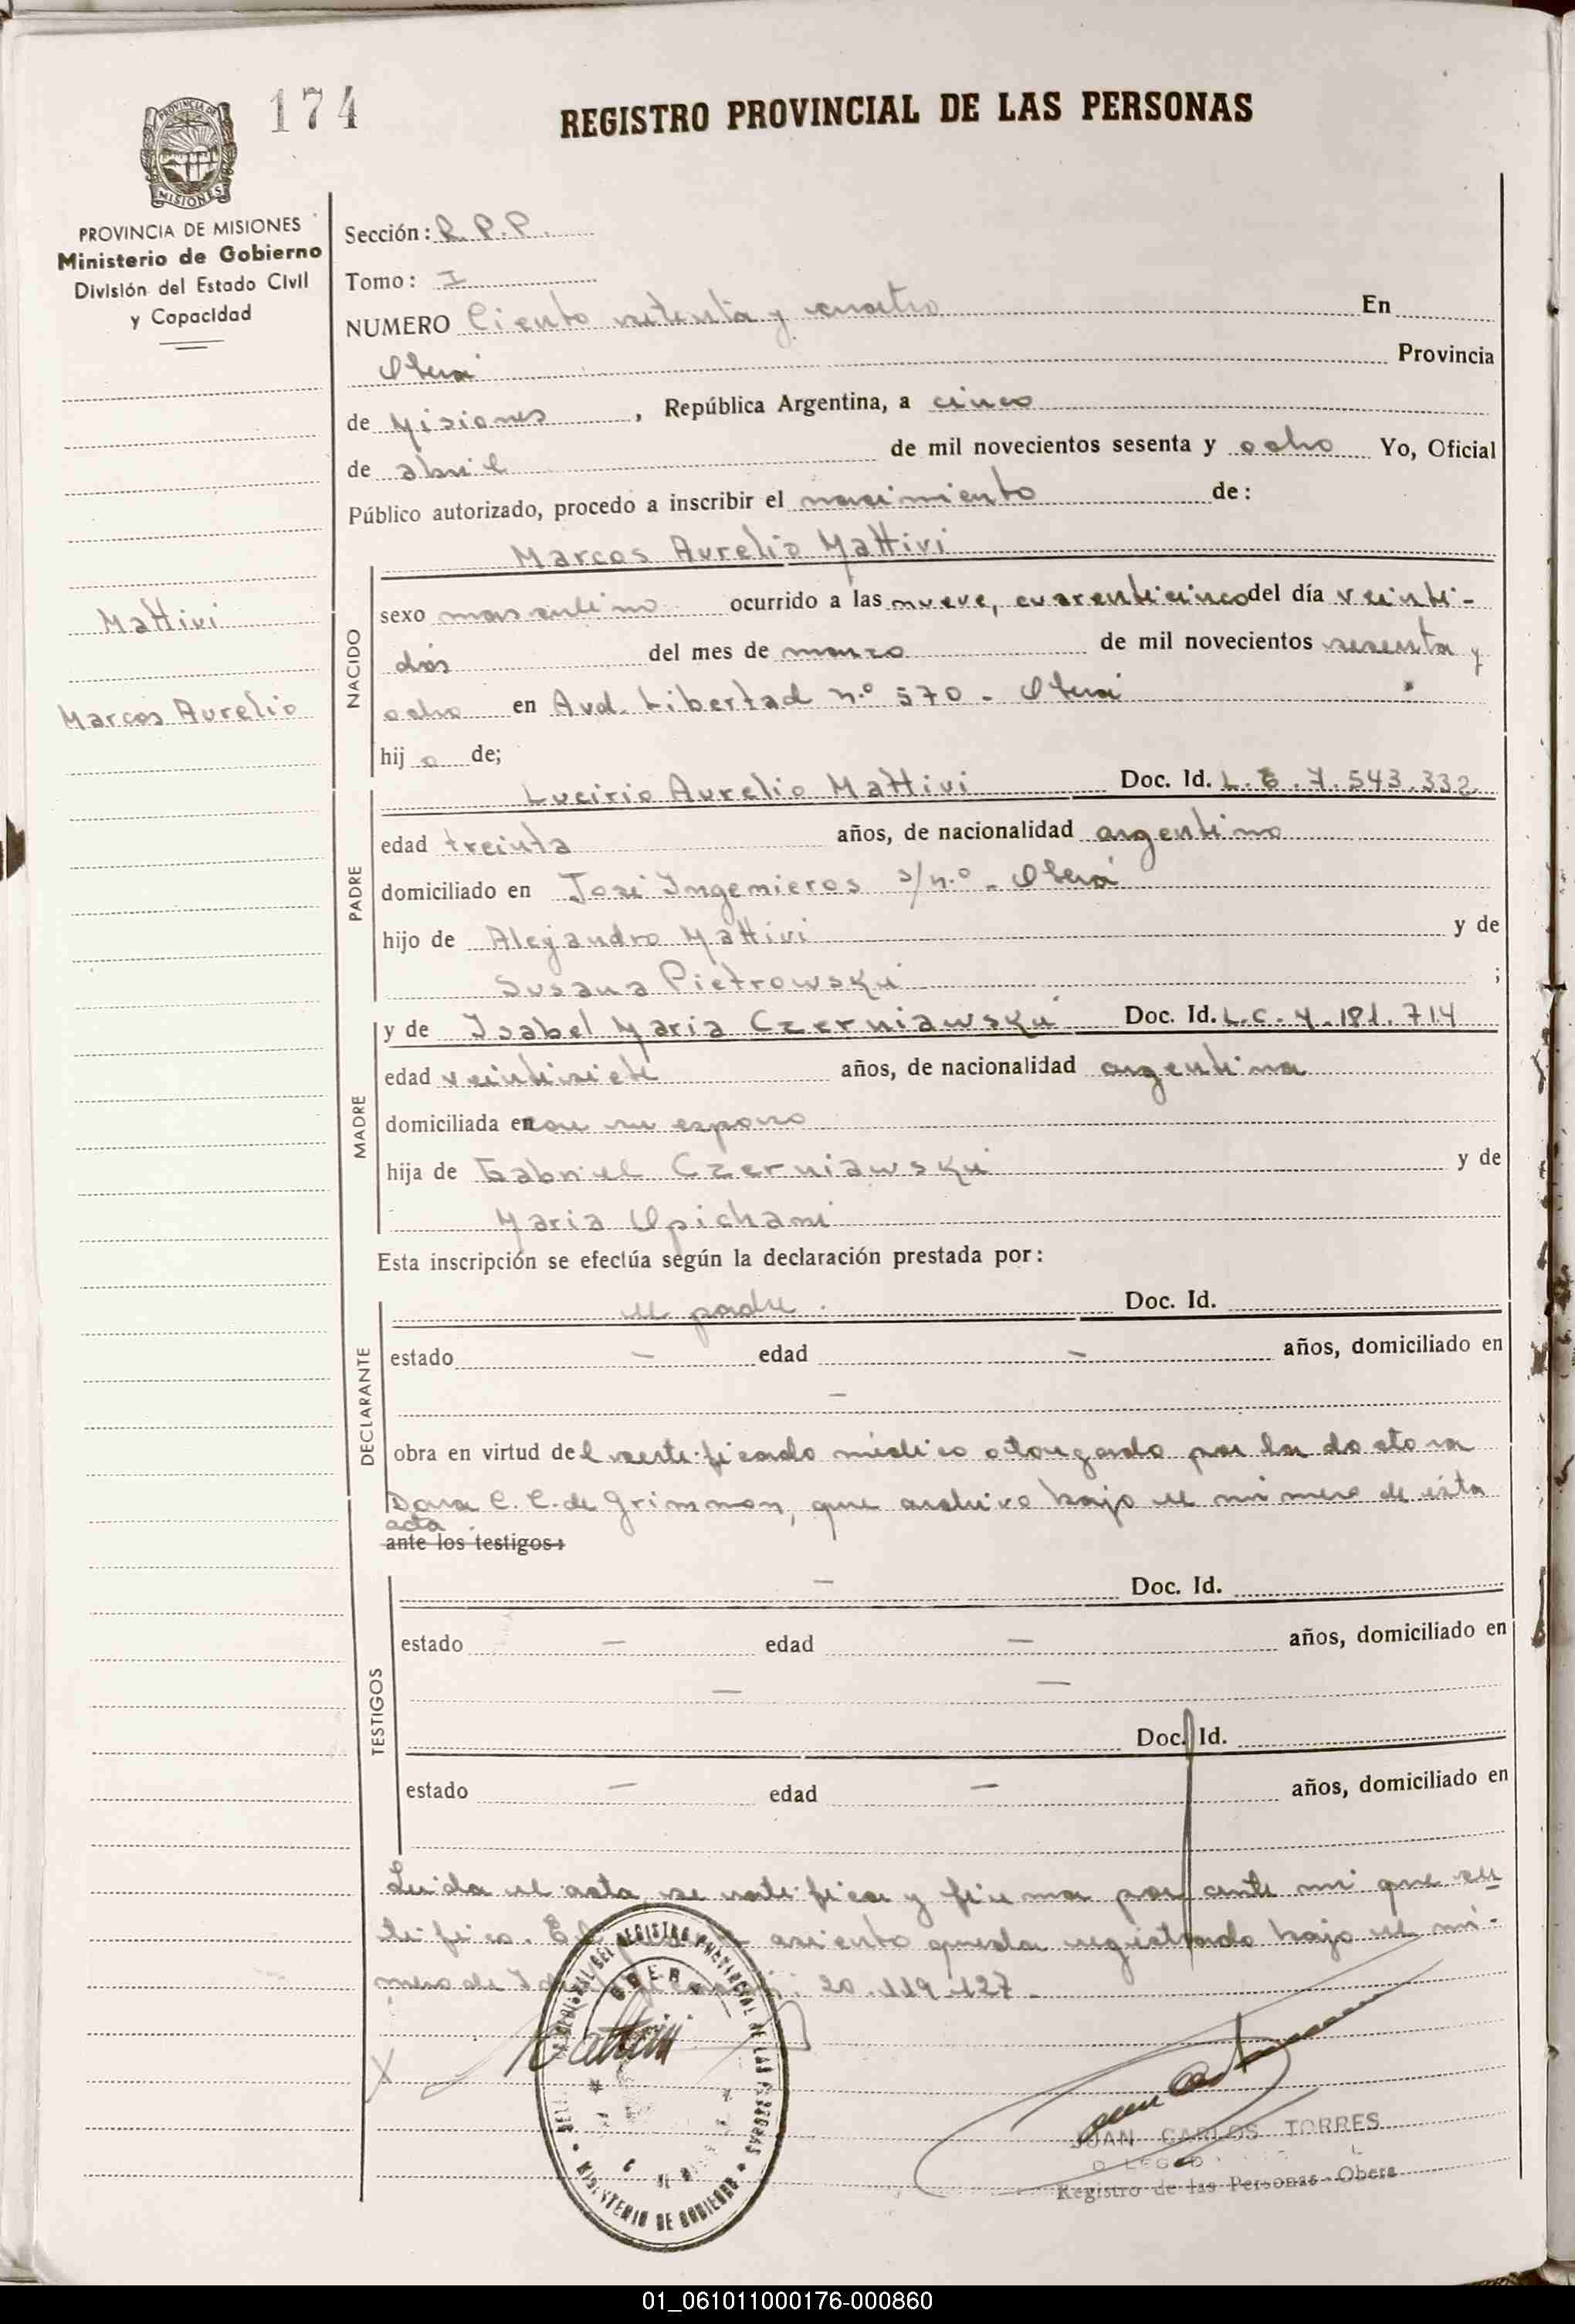 174
REGISTRO PROVINCIAL DE LAS PERSONAS
PROVINCIA DE
MISIONES
PROVINCIA DE MISIONES
Ministerio de Gobierno
División del Estado Civil
y Capacidad
Mattivi
Marcos Aurelio
Sección: R.P.P.
Tomo: I
NUMERO Ciento setenta y cuatro En
Oberá Provincia
de Misiones, República Argentina, a cinco
de abril de mil novecientos sesenta y ocho Yo, Oficial
Público autorizado, procedo a inscribir el nacimiento de:
Marcos Aurelio Mattivi
NACIDO
sexo masculino ocurrido a las nueve, cuarenticinco del día veinti-
dós del mes de marzo de mil novecientos sesenta y
ocho en Avd. Libertad n.º 570 - Oberá
hij o de;
PADRE
Lucirio Aurelio Mattivi Doc. Id. L.E. 7.543.332
edad treinta años, de nacionalidad argentino
domiciliado en José Ingenieros s/n.º - Oberá
hijo de Alejandro Mattivi y de
Susana Pietrowski ;
MADRE
y de Isabel Maria Czerniawski Doc. Id. L.C. 4.181.714
edad veintisiete años, de nacionalidad argentina
domiciliada en con su esposo
hija de Gabriel Czerniawski y de
Maria Opichani
Esta inscripción se efectúa según la declaración prestada por:
DECLARANTE
el padre. Doc. Id.
estado - edad - años, domiciliado en
-
obra en virtud del certificado médico otorgado por la doctora
Dora C. C. de Grimmon, que archivo bajo el número de ésta
acta.
ante los testigos:
TESTIGOS
- Doc. Id.
estado - edad - años, domiciliado en
- -
Doc. Id.
estado - edad - años, domiciliado en
Leida el acta, se ratifica y firma por ante mi que cer
tifico. El asiento queda registrado bajo el nú-
mero de : 20.119.127 -
X Mattivi
REGISTRO PROVINCIAL DE LAS PERSONAS
OBERA
MINISTERIO DE GOBIERNO
JUAN CARLOS TORRES
Registro de las Personas - Obera
01_061011000176-000860